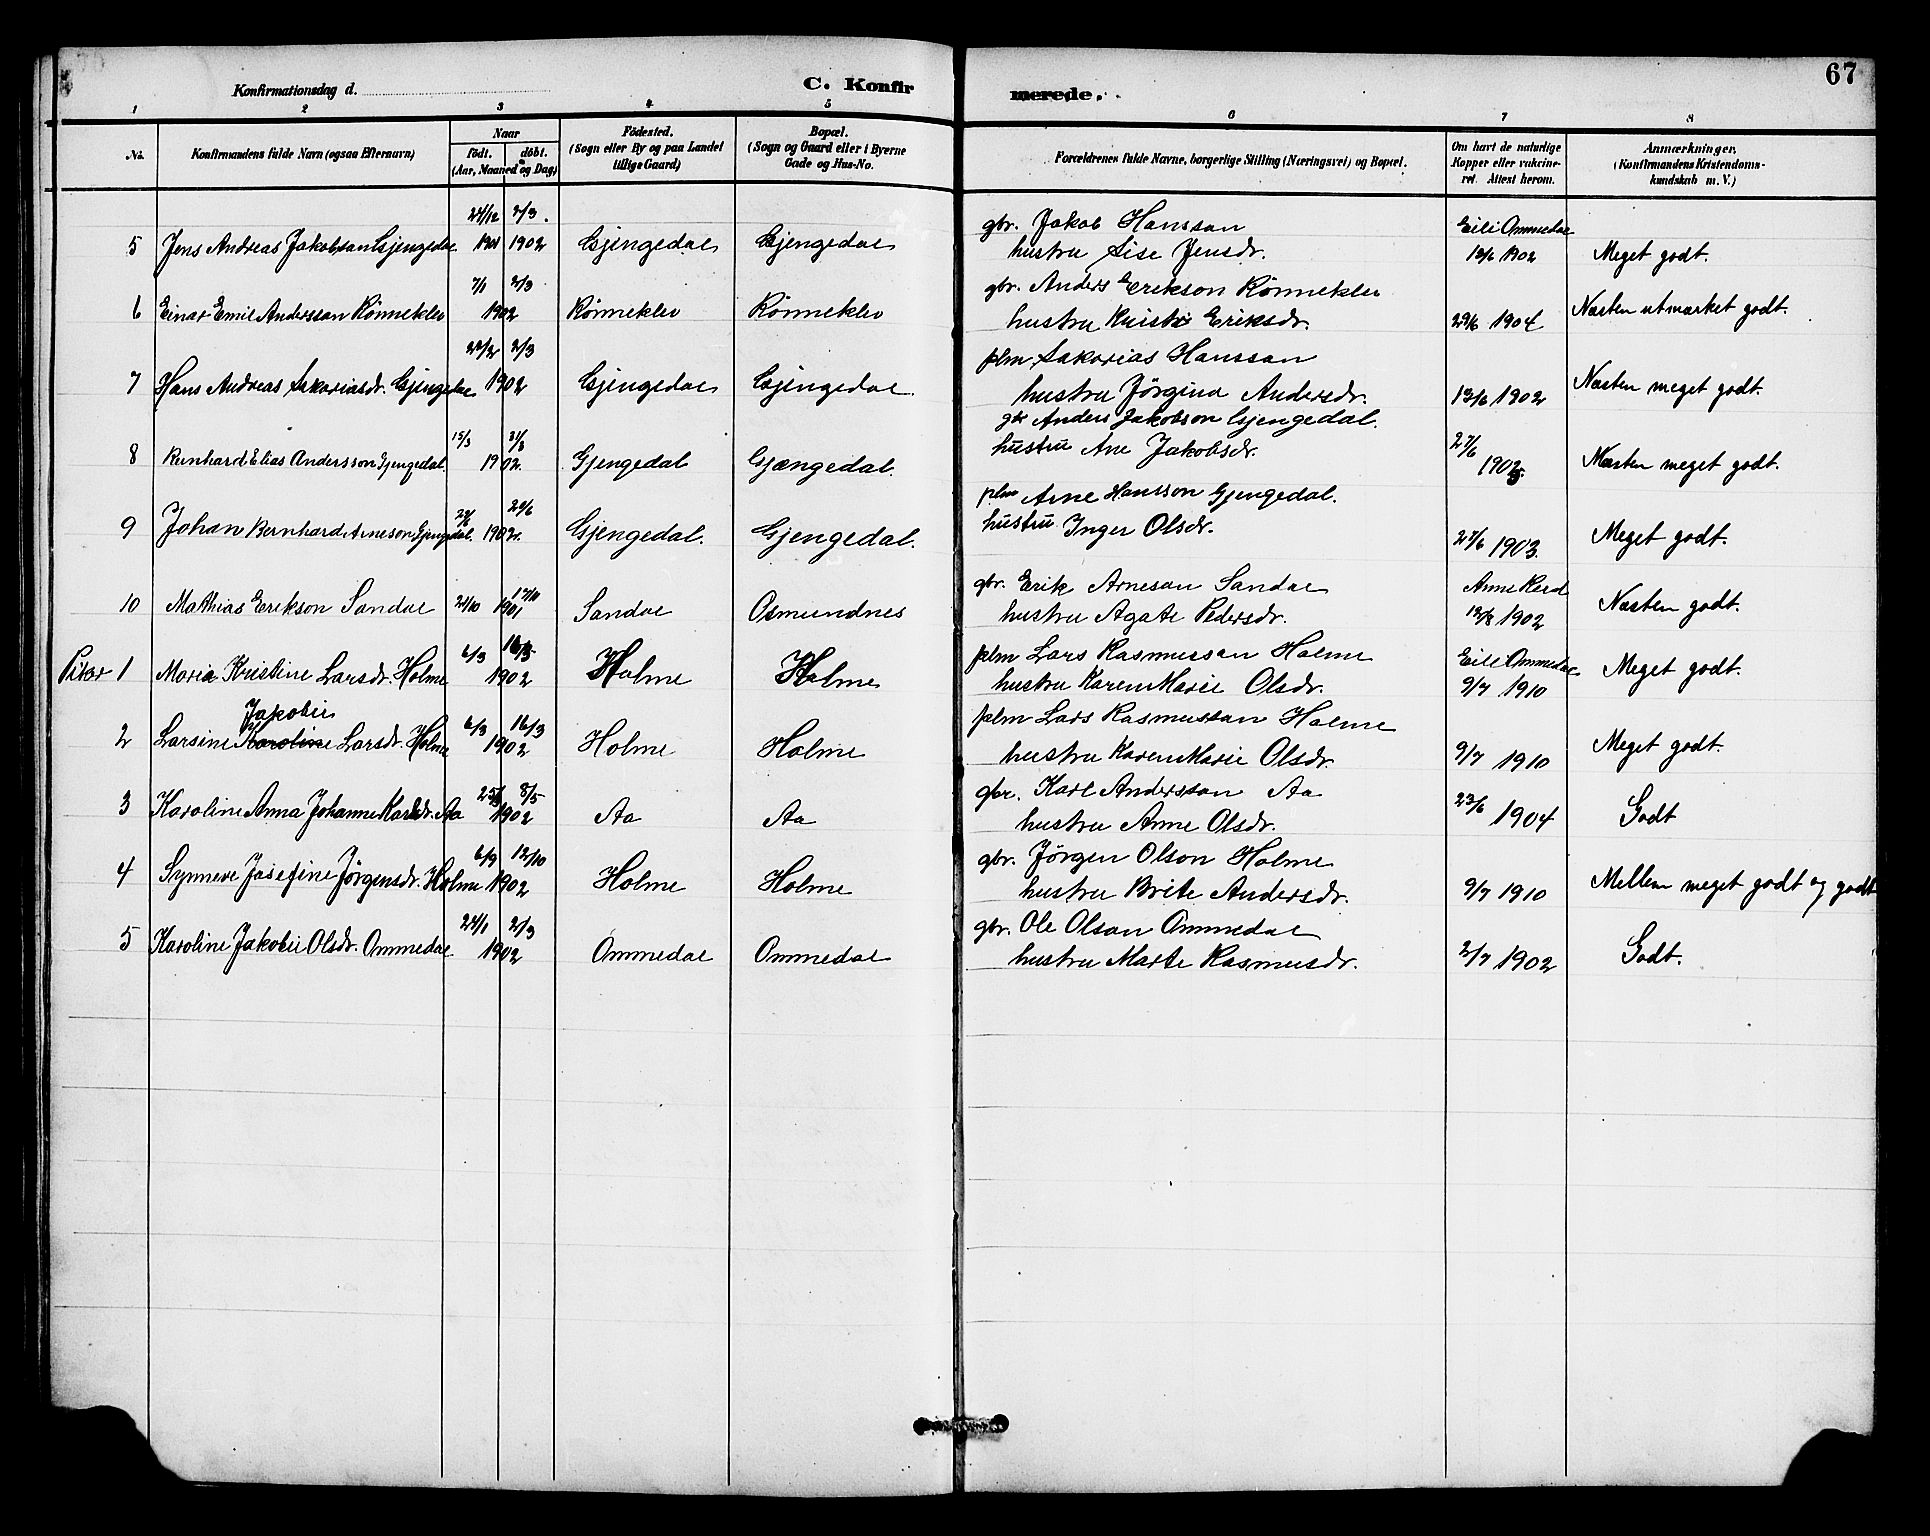 67
Konfirmationsdag d.
C. Konfirmerede.
1 2 3 4 5 6 7 8
No.
Konfirmandens fulde Navn (ogsaa Efternavn)
Naar
født. døbt.
(Aar, Maaned og Dag)
Fødested.
(Sogn eller By og paa Landet
tillige Gaard)
Bopæl.
(Sogn og Gaard eller i Byerne
Gade og Hus-No.
Forældrenes fulde Navne, borgerlige Stilling (Næringsvei) og Bopæl.
Om havt de naturlige
Kopper eller vakcine-
ret. Attest herom.
Anmærkninger.
(Konfirmandens Kristendoms-
kundskab m. V.)
24/12 2/3. gbr. Jakob Hanssan Eili Ommedal
5 Jens Andreas Jakobsan Gjengedal 1901 1902 Gjengedal Gjengedal hustru Sise Jensdr. 12/6 1902 Meget godt.
7/1 2/3 gbr. Anders Erikson Rønneklev
6 Einar Emil Anderssan Rønneklev 1902 Rønneklev Rønneklev hustru Kristi Eriksdr. 29/6 1904 Næsten utmærket godt.
22/2 2/3 plm. Sakarias Hanssan
7 Hans Andreas Sakariasdr. Gjengedal 1902 Gjengedal Gjengedal hustru Jørgina Andersdr. 12/6 1902 Næsten meget godt.
15/3 31/3 gbr Anders Jakobson Gjengedal.
8 Reinhard Elias Andersson Gjengedal 1902. Gjengedal Gjængedal. hustru Ane Jakobsdr. 27/6 1903. Næsten meget godt.
29/6 plm Arne Hansson Gjengedal.
9 Johan Bernhard Arneson Gjengedal. 1902. Gjengedal. Gjengedal. hustru Inger Olsdr. 27/6 1903. Meget godt.
gbr. Erik Arnesan Sandal Anne Reed
10 Mathias Erikson Sandal 21/10 17/10 1901 Sandal Osmundnes hustru Agate Pedersdr. 12/8 1902 Næsten godt.
6/3 16/3 plm Lars Rasmussan Holme Eili Ommedal
Piker 1 Maria Kristine Larsdr. Holme 1902 Holme Holme hustru Karen Marie Olsdr. 9/7 1910 Meget godt.
Jakobie 6/3 16/3 plm Lars Rasmussan Holme
2 Larsine Karoline Larsdr. Holme 1902 Holme Holme hustru Karen Marie Olsdr. 9/7 1910 Meget godt.
8/5 gbr. Karl Anderssan Aa
3 Karoline Anna Johanne Karlsdr. Aa 1902 Aa Aa hustru Anne Olsdr. 23/6 1904 Godt
6/9 12/10 gbr. Jörgen Olson Holme
4 Synneve Josefine Jörgensdr. Holme 1902 Holme Holme hustru Brite Andersdr. 9/7 1910 Mellem meget godt og godt
24/1 2/3 gbr. Ole Olsan Ommedal
5 Karoline Jakobie Olsdr. Ommedal 1902 Ommedal Ommedal hustru Marte Rasmusdr. 2/7 1902 Godt.